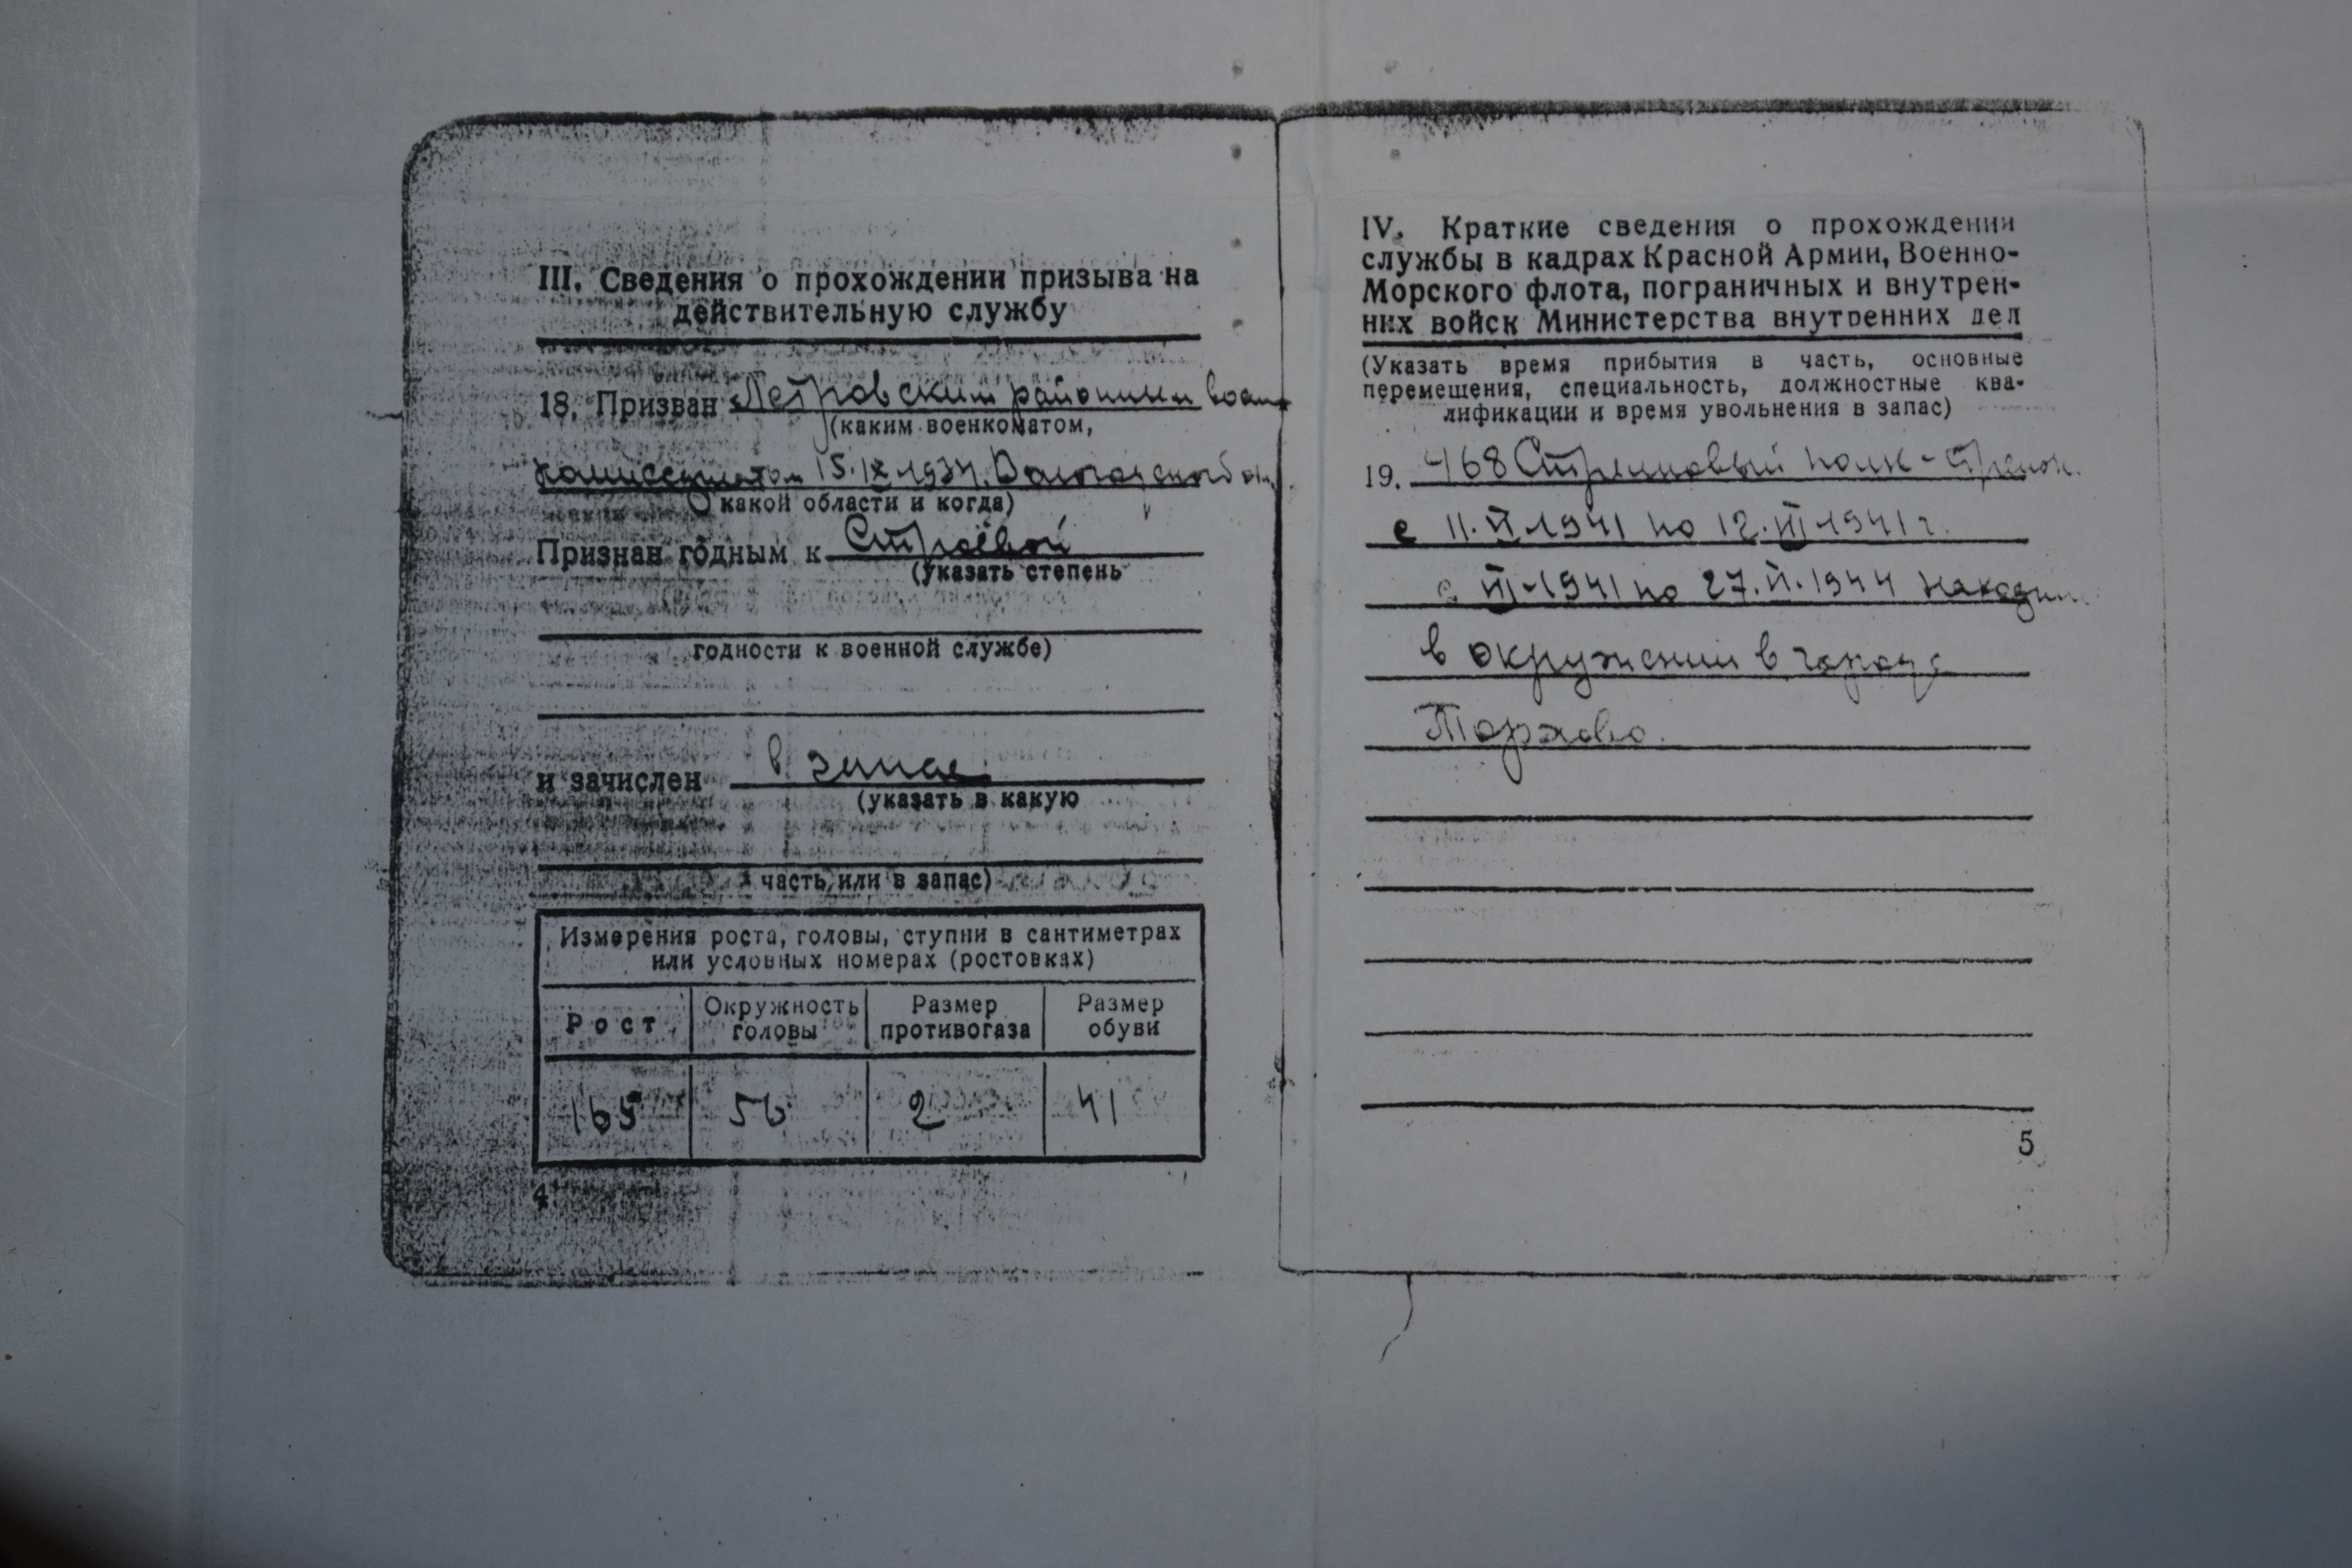 III. Сведения о прохождении призыва на
действительную службу
18. Призван Петровским районным воен
(каким военкоматом,
комиссариатом 15.IX.1934.
какой области и когда)
Признан годным к Строевой
(указать степень
годности к военной службе)
и зачислен в запас
(указать в какую
часть или в запас)
Измерения роста, головы, ступни в сантиметрах
или условных номерах (ростовках)
Рост
Окружность
головы
Размер
противогаза
Размер
обуви
165
56
2
41
4
IV. Краткие сведения о прохождении
службы в кадрах Красной Армии, Военно-
Морского флота, пограничных и внутрен-
них войск Министерства внутренних дел
(Указать время прибытия в часть, основные
перемещения, специальность, должностные ква-
лификации и время увольнения в запас)
19. 468 Стрелковый полк - стрелок.
с 11.VI.1941 по 12.VII.1941 г.
с VII.1941 по 27.II.1944 находил
в окружении в городе
5